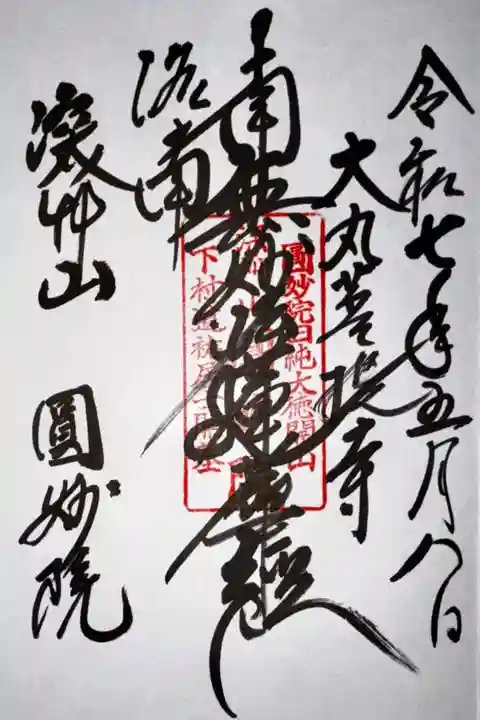 令和七年五月八日
大丸菩提寺
南無妙法蓮華経
洛南
深艸山 圓妙院
圓妙院日純大徳開山
下村